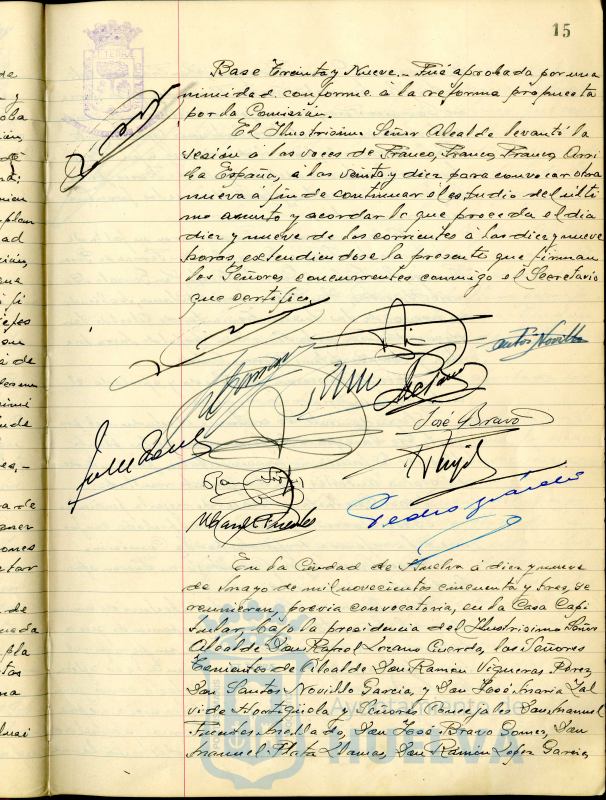 15
Base Treinta y Nueve.- Fué aprobada por una
nimidad conforme á la reforma propuesta
por la Comisión.
El Ilustrisimo Señor Alcalde levantó la
sesión á las voces de Franco, Franco, Franco, Arri
ba España, á las veinte y diez para convocar otra
nueva á fin de continuar el estudio del ulti
mo asunto y acordar lo que proceda el dia
diez y nueve de los corrientes á las diez y nueve
horas, extendiendose la presente que firman
los Señores concurrentes conmigo el Secretario
que certifico.
Santos Novillo
José Bravo
Manuel Fuentes
Pedro
En la Ciudad de Huelva á diez y nueve
de mayo de mil novecientos cincuenta y tres, se
reunieron, previa convocatoria, en la Casa Capi
tular bajo la presidencia del Ilustrisimo Señor
Alcalde Don Rafael Lozano Cuerda, los Señores
Tenientes de Alcalde Don Ramón Vigueras Perez
Don Santos Novillo Garcia, y Don José Maria Zal
vide Hortigüela y Señores Concejales Don Manuel
Fuentes Don José Bravo Gomez, Don
Manuel Plata Llamas, Don Ramón Lopez Garcia,
Ayuntamiento de
HUELVA